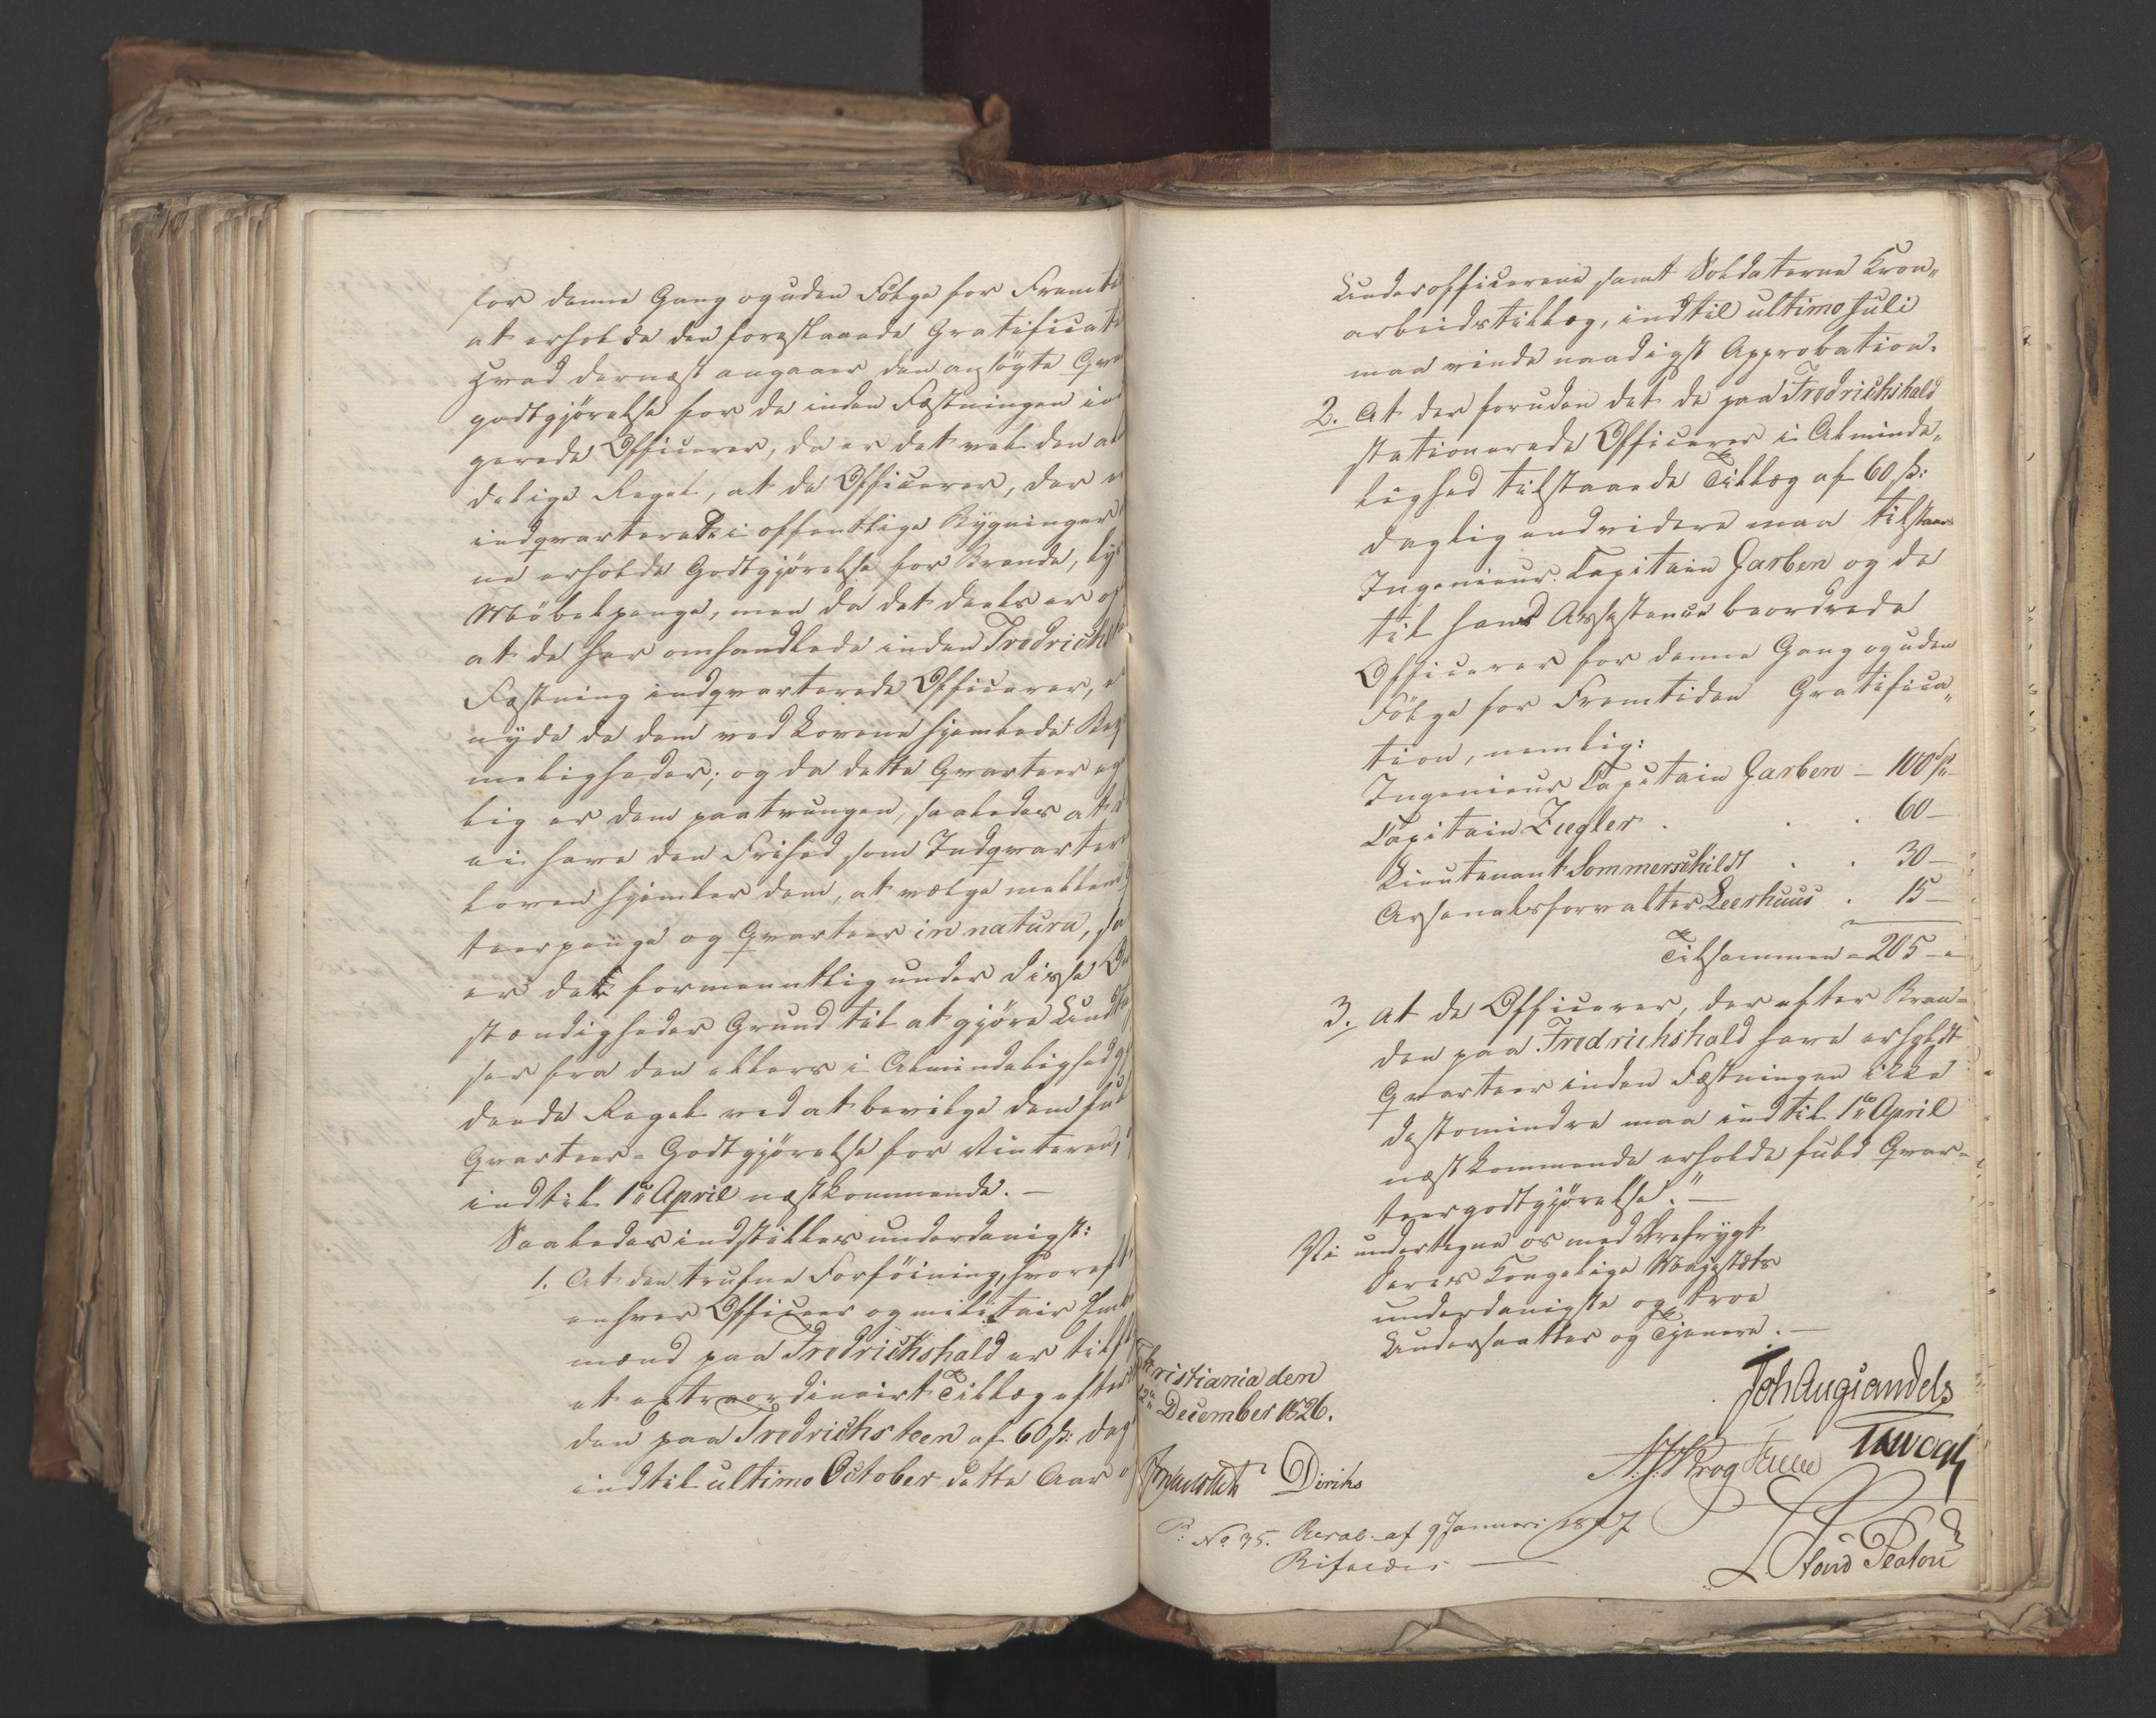 for denne Gang og uden Følge for Fremti
at erholde den foreslaaede Gratificati
Hvad dernæst angaaer den ansøgte Qva
godtgjørelse for de inden Fæstningen ind
gerede Officerer, da er det vel den al
delige Regel, at de Officerer, der er
indqvarterede i offentlige Bygninger
ne erholde Godtgjørelse for Brænde, Lys
Möbelpenge, men da det deels er op
at de her omhandlede inden Fredrichst
Fæstning indqvarterede Officerer, ei
nyde de dem ved Loven hjemlede Beqv
meligheder; og da dette Qvarteer eg
lig er dem paatvungen, saaledes at d
ei have den Frihed, som Indqvarter
loven hjemler dem, at vælge mellem
teerpenge og Qvarteer in natura, saa
er det formeentlig under disse Om
stændigheder Grund til at gjøre Undta
ser fra den ellers i Almindelighed gj
dende Regel ved at bevilge dem fuld
Qvarteer-Godtgjørelse for Vinteren,
indtil 1ste April næstkommende. —
Saaledes indstilles underdanigst:
1. At den trufne Forføining, hvoreft
enhver Officeer og militair Embe
mænd paa Fredrichshald er tils
et extraordinairt Tillæg efter
den paa Fredrichsteen af 60 ß: dag
indtil ultimo October dette Aar o
Underofficererne samt Soldaterne Kron„
arbeidstillæg, indtil ultimo Juli
maa vinde naadigst Approbation.
2. At der foruden det de paa Fredrichshald
stationerede Officerer i Alminde„
lighed tilstaaede Tillæg af 60 ß:
daglig endvidere maa tilstaaes
Ingenieur-Capitain Garben og de
til hans Assistence beordrede
Officerer for denne Gang og uden
Følge for Fremtiden Gratifica„
tion, nemlig:
Ingenieur Capitain Garben — 100 Sp
Capitain Ziegler . . . 60 —
Lieutenant Sommerschildt . . 30 —
Arsenalsforvalter Leerhuus . 15 —
Tilsammen = 205 —
3. At de Officerer, der efter Bran=
den paa Fredrichshald have erholdt
Qvarteer inden Fæstningen ikke
destomindre maa indtil 1ste April
næstkommende erholde fuld Qvar=
teergodtgjørelse." —
Vi undertegne os med Ærefrygt
Deres Kongelige Majestæts
underdanigste og troe
Undersaatter og Tjenere. —
Christiania den
12te December 1826.
Joh Aug Sandels
N. J. Krog
Diriks
No 35. Resol. af 9 Januari 1827
Bifaldes —